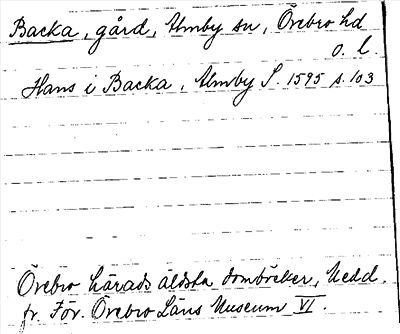 Backa, gård, Almby sn, Örebro hd
o. l.
Hans i Backa, Almby S. 1595 s. 103
Örebro härads äldsta domböcker, Medd.
fr. För. Örebro Läns Museum VI.